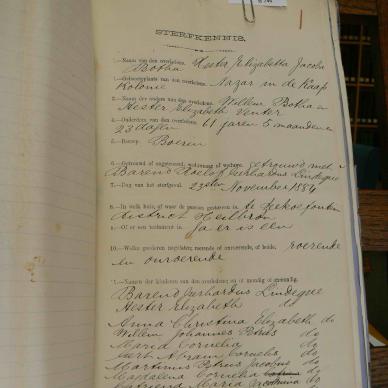 STERFKENNIS.
1.—Naam van den overledene. Hester Elizabetha Jacoba
Botha
2.—Geboorteplaats van den overledene. Nazar in de Kaap
Kolonie
3.—Namen der ouders van den overledene. Willem Botha en
Hester Elizabeth Venter
4.—Ouderdom van den overledene. 61 jaren 5 maanden en
23 dagen
5.—Beroep. Boeren
6.—Getrouwd of ongetrouwd, weduwnaar of weduwe. getrouwd met
Barend Roelof Gerhardus Lindeque
7.—Dag van het sterfgeval. 23sten November 1884
8.—In welk huis, of waar de persoon gestorven is. te Zeekoefontein
district Heilbron
9.—Of er een testament is. Ja er is een
10.—Welke goederen nagelaten, roerende of onroerende, of beide. roerende
en onroerende
11.—Namen der kinderen van den overledene en of mondig of onmondig.
Barend Gerhardus Lindeque
Hester Elizabeth do
Anna Christina Elizabeth do
Willem Johannes Petrus do
Maria Cornelia do
Gert Abram Cornelis do
Martinus Petrus Jacobus do
Magdalena Cornelia do
Maria